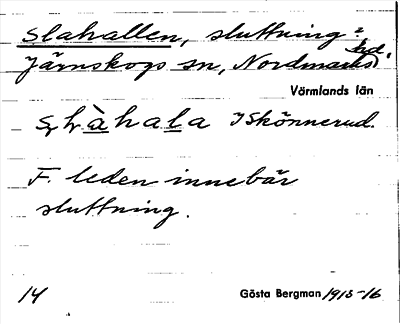 Slahallen, sluttning?
Järnskogs sn, Nordmarks hd.
Värmlands län
shàhala I Skönnerud.
F. leden innebär
sluttning.
14
Gösta Bergman 1915-16